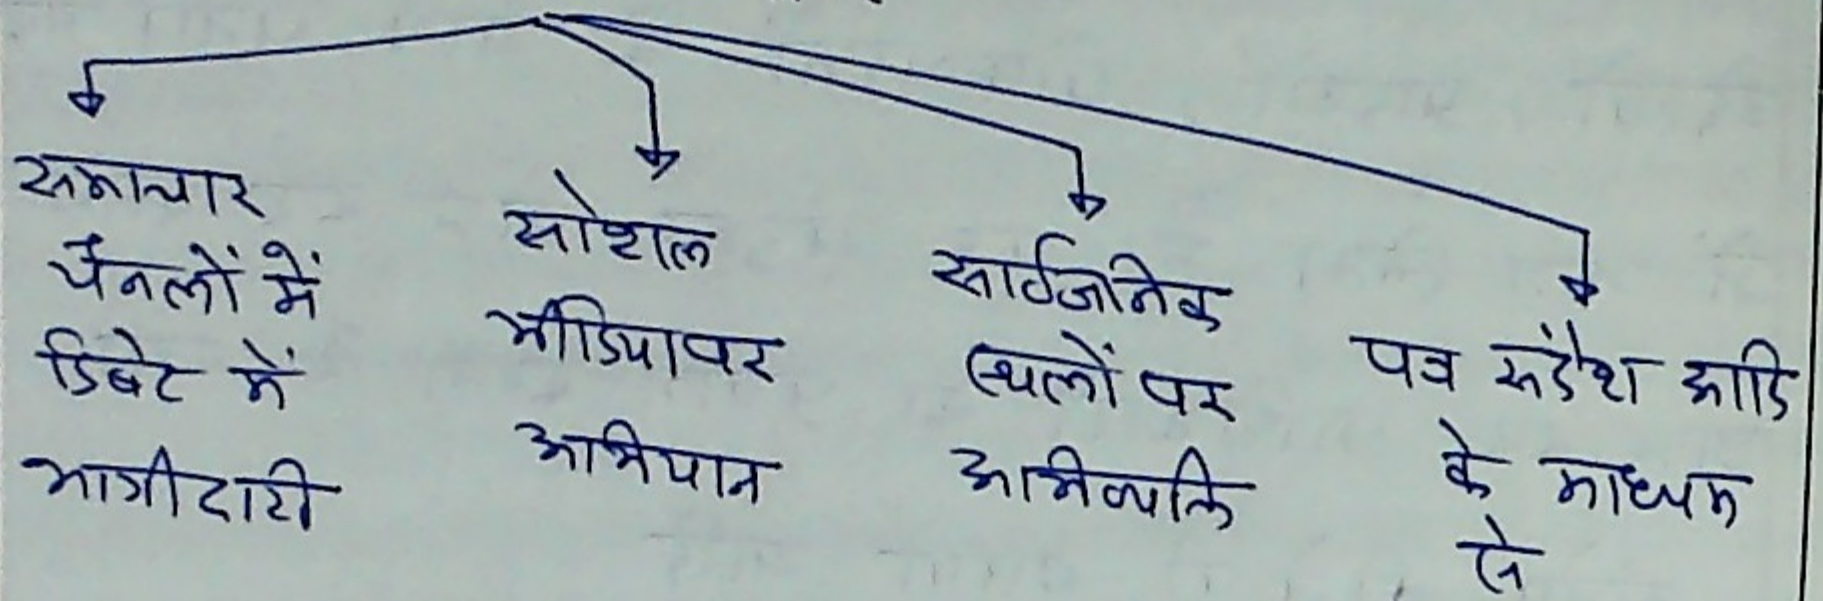 समाचार
चैनलों में
डिबेट में
भागीदारी
सोशल
मीडिया पर
अभियान
सार्वजनिक
स्थलों पर
अभिव्यक्ति
पत्र संदेश आदि
के माध्यम
से